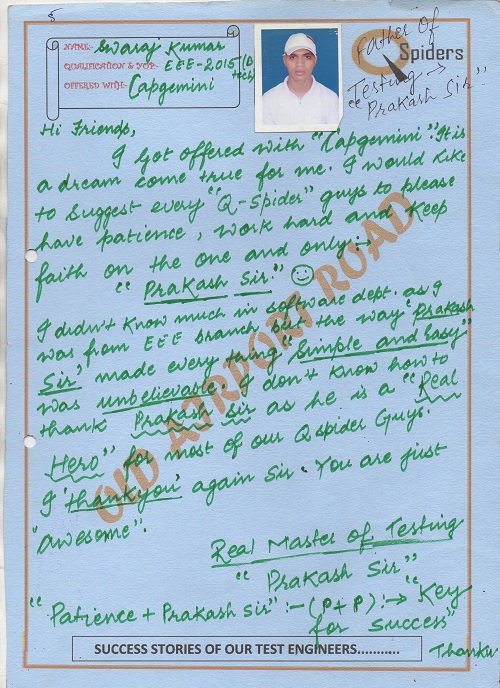 5
NAME:- Swaraj Kumar
QUALIFICATION & YOP:- EEE-2015 (B
tech)
OFFERED WITH:- Capgemini
Father of
Q Spiders
Testing →
"Prakash Sir"
Hi Friends,
I got offered with "Capgemini". It is
a dream come true for me. I would like
to suggest every "Q-Spider" guys to please
have patience, work hard and keep
faith on the one and only :→
"Prakash Sir" ☺
I didn't know much in software dept. as I
was from EEE branch but the way 'Prakash
Sir' made every thing "Simple and Easy"
was unbelievable. I don't know how to
thank Prakash Sir as he is a "Real
Hero" for most of our Qspider Guys.
I 'thankyou' again Sir. You are just
"Awesome".
OLD AIRPORT ROAD
Real Master of Testing
"Prakash Sir"
"Patience + Prakash Sir" :- (P+P) :→ "Key
for success"
SUCCESS STORIES OF OUR TEST ENGINEERS...........